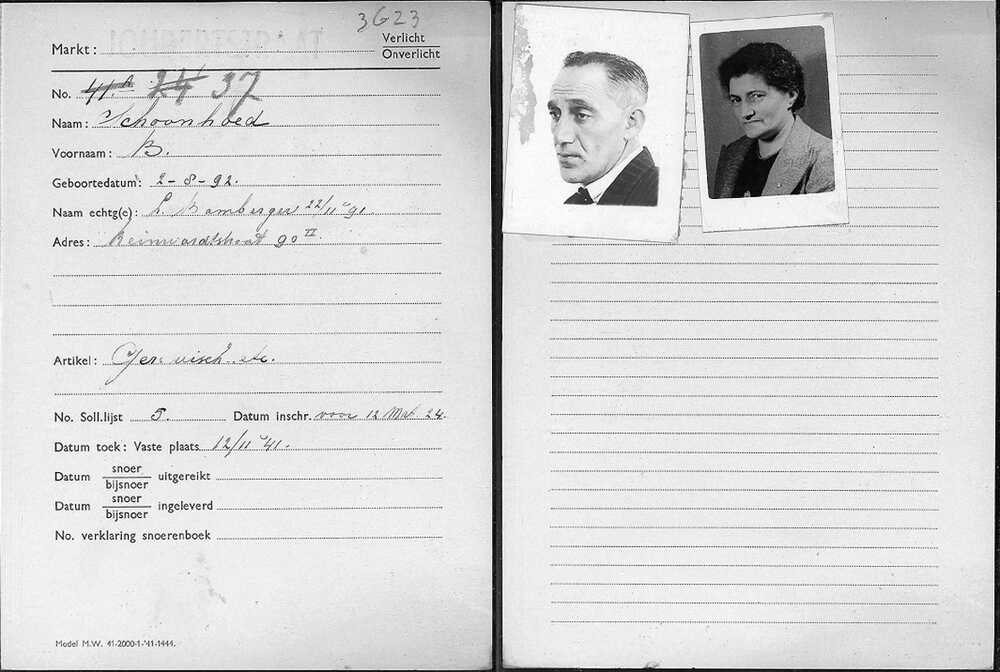 3623
Markt:
Verlicht
Onverlicht
No. 41.A 24 37
Naam: Schoonhoed
Voornaam: B.
Geboortedatum: 2-8-92.
Naam echtg(e): L. Bamberger 22/11 '91.
Adres: Reinwardtstraat 90 II.
Artikel: Ger. visch. etc.
No. Soll.lijst 5. Datum inschr. voor 12 Mrt 24.
Datum toek: Vaste plaats 12/11 '41.
Datum snoer
bijsnoer uitgereikt
Datum snoer
bijsnoer ingeleverd
No. verklaring snoerenboek
Model M.W. 41-2000-1-'41-1444.